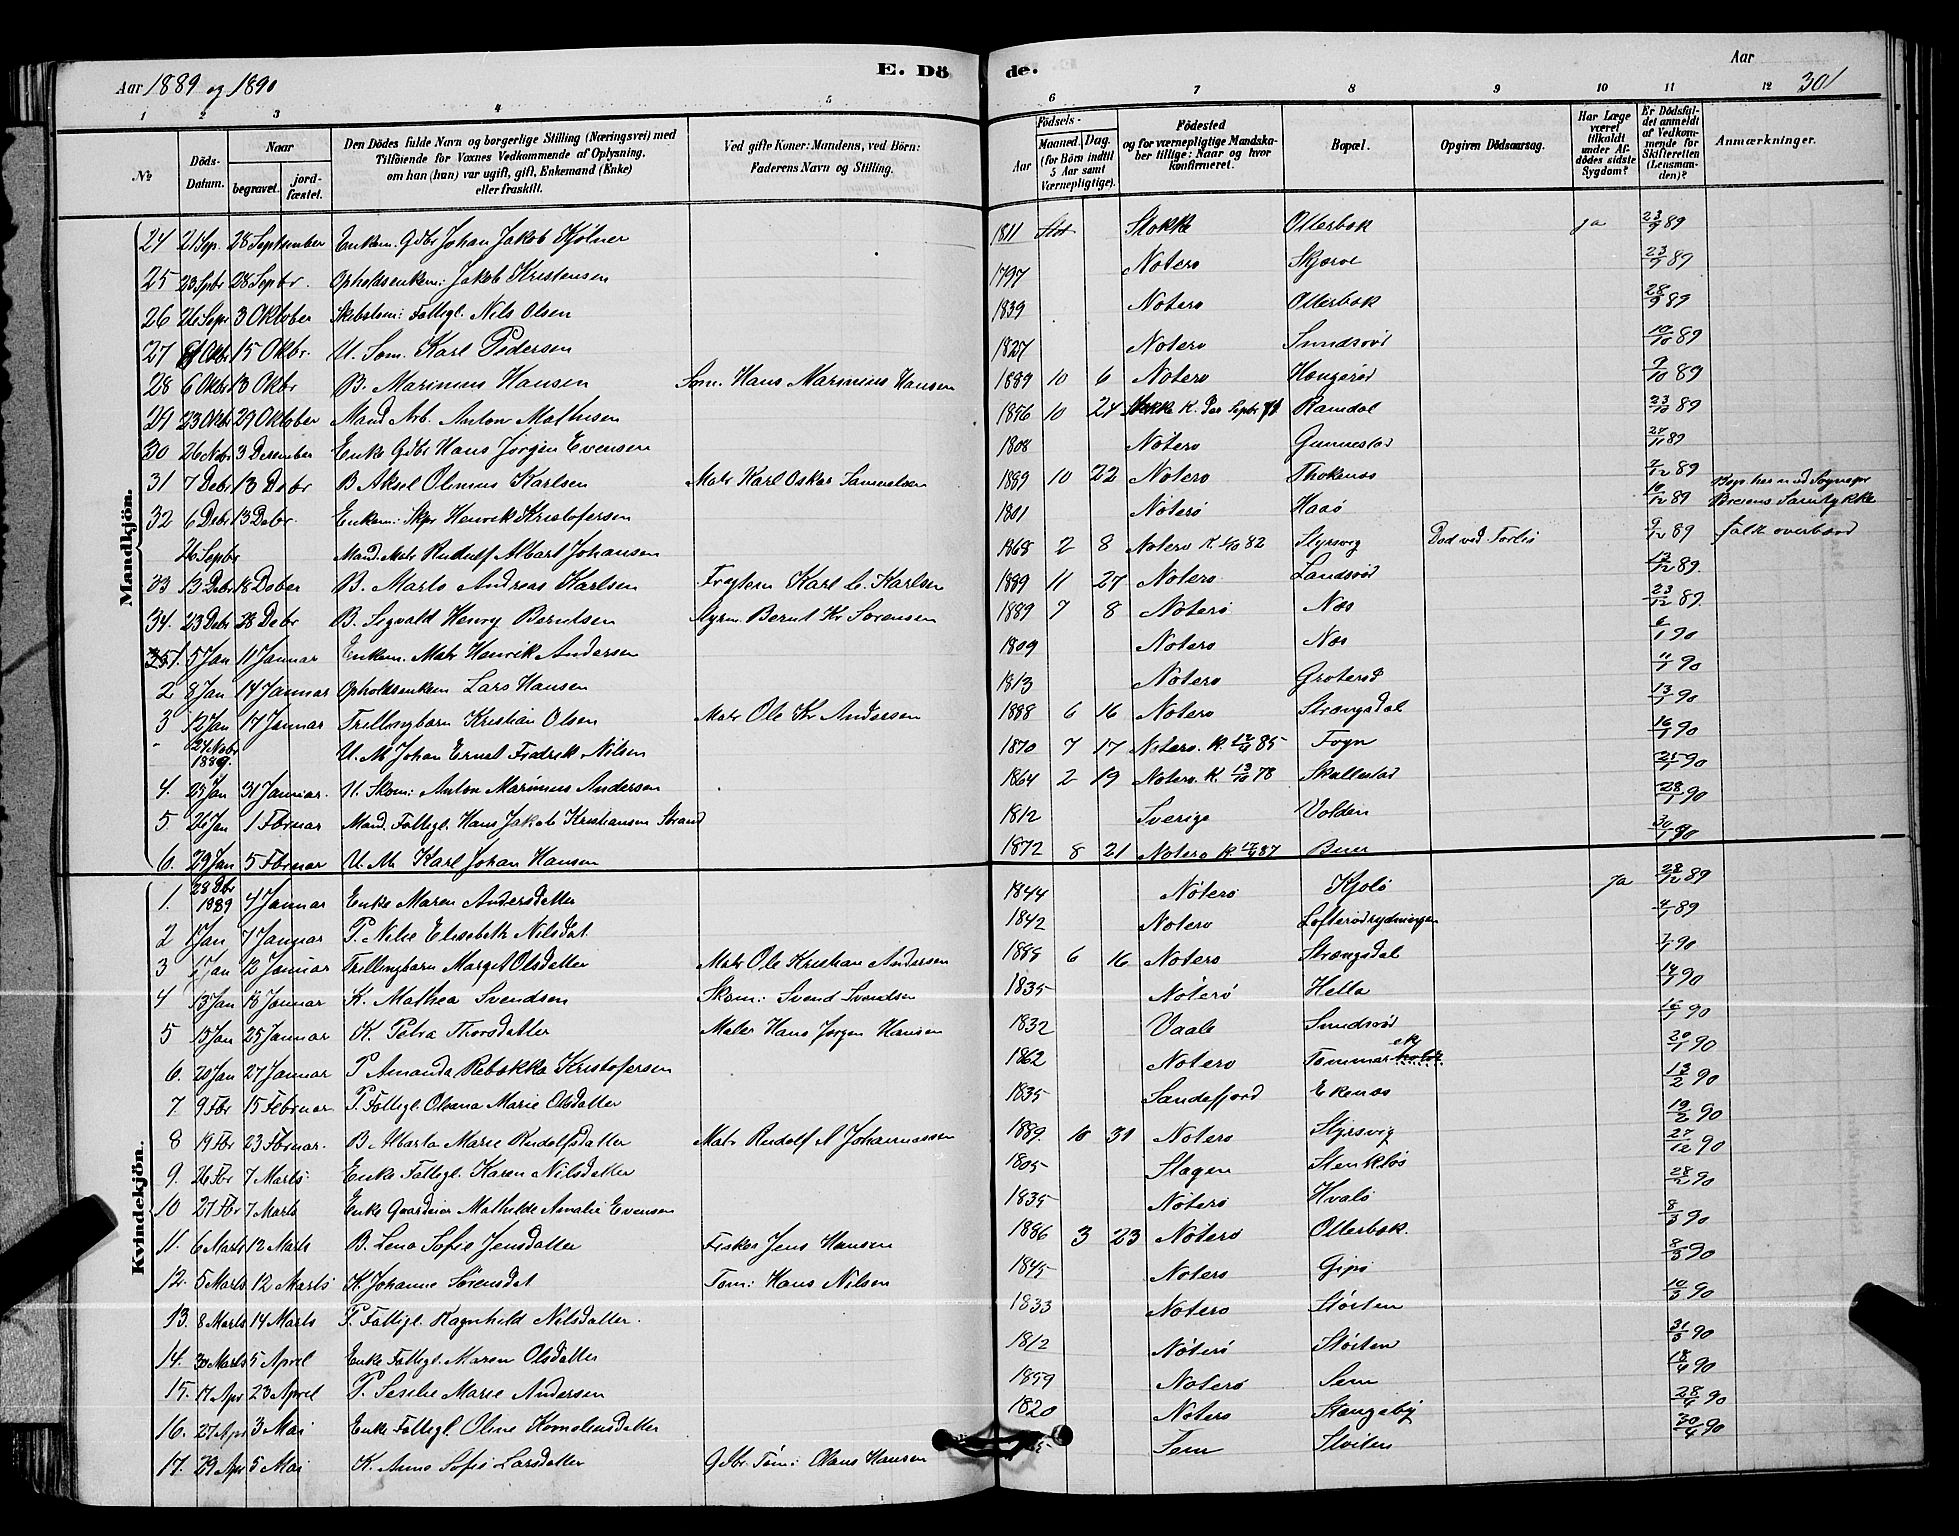 Aar 1889 og 1890
E. Dö
de.
Aar
301
1 2 3 4 5 6 7 8 9 10 11 12
№
Döds-Datum.
Naar
begravet.
jordfæstet.
Den Dödes fulde Navn og borgerlige Stilling (Næringsvei) med
Tilföiende for Voxnes Vedkommende af Oplysning,
om han (hun) var ugift, gift, Enkemand (Enke)
eller fraskilt.
Ved gifte Koner: Mandens, ved Börn:
Faderens Navn og Stilling.
Födsels-
Aar
Maaned. Dag.
(for Börn indtil
5 Aar samt
Værnepligtige).
Födested
og for værnepligtige Mandska-
ber tillige: Naar og hvor
konfirmeret.
Bopæl.
Opgiven Dödsaarsag.
Har Læge
været
tilkaldt
under Af-
dödes sidste
Sygdom?
Er Dödsfal-
det anmeldt
af Vedkom-
mende for
Skifteretten
(Lensman-
den)?
Anmærkninger.
Mandkjön.
24 21 Sep. 28 September Enkem. Gdbr Johan Jakob Kjölner 1811 Stokke Otterbæk ja 23/9 89
25 23 Spbr 28 Sepbr. Opholdsenkem: Jakob Kristensen 1797 Nøterø Skjærve 23/9 89
26 26 Sepr 3 Oktober Fattigl. Nils Olsen 1839 Nøterø Otterbæk 28/9 89
27 Okbr 15 Okbr. U. Søm. Karl Pedersen 1827 Nøterø Smidsrød 10/10 89
28 6 Okbr 13 Okbr B. Marinius Hansen Søm. Hans Marinius Hansen 1889 10 6 Nøterø Haugerød 9/10 89
29 23 Okbr 29 Oktober Mand Arb. Anton Mathisen 1856 10 24 Stokke K. Sepbr 71 Ramdal 23/10 89
30 26 Nobr 3 Desember Enke Gdbr Hans Jørgen Evensen 1808 Nøterø Gunnestad 27/11 89
31 7 Debr 13 Debr B Aksel Olinius Karlsen Matr Karl Oskar Samuelsen 1889 10 22 Nøterø Thokenes 7/12 89
32 6 Debr 13 Debr. Enkem: Skpr Henrik Kristofersen 1801 Nøterø Haaø 10/12 89 Samtykke
26 Sepbr Mand. Matr Rudolf Albart Johansen 1868 2 8 Nøterø K. 1/10 82 Styrsvig Død ved Forlis 9/12 89 falt overbord
33 13 Debr 18 Deber B. Marlo Andreas Karlsen Karl C. Karlsen 1889 11 27 Nøterø Landsrød 13/12 89.
34. 23 Debr 28 Debr B. Sigvald Henry Berntsen Myrm. Bernt Kr Sørensen 1889 7 8 Nøterø Nes 23/12 89.
1. 5 Jan 11 Januar Enkem. Matr Henrik Andersen 1809 Nøterø Nes 6/1 90
2 8 Jan 14 Januar Opholdsenkem Lars Hansen 1813 Nøterø Grøterød 11/1 90
3 12 Jan 17 Januar Trillingbarn Kristian Olsen Matr Ole Kr Andersen 1888 6 16 Nøterø Strængsdal 13/1 90
" 24 Nobr 1889. U. M Johan Ernst Fredrik Nilsen 1870 7 17 Nøterø. K. 85 Foyn 16/1 90
4. 25 Jan 31 Januar. U. Skom: Anton Marinius Andersen 1864 2 19 Nøterø. K. 13/10 78 Skallestad 25/1 90
5. 26 Jan 1 Februar Mand. Fattigl. Hans Jakob Kristiansen Strand 1812 Sverige Volden 28/1 90
6. 29 Jan 5 Februar U. M Karl Johan Hansen 1872 8 21 Nøterø K. 87 Buer 30/1 90
Kvindekjön.
1. 28 Dbr 1889 4 Januar Enke Maren Andersdatter 1844 Nøterø Kjølø Ja 28/12 89
2 1 Jan 7 Januar P. Nilie Elisabeth Nilsdat. 1842 Nøterø Lofterødrydningen 4/1 89
3 7 Jan 12 Januar Trillingbarn Marget Olsdatter Matr Ole Kristian Andersen 1889 6 16 Nøterø Strængsdal 7/1 90
4 13 Jan 18 Januar K. Mathea Svendsen Skom: Svend Svendsen 1835 Nøterø Hella 14/1 90
5 15 Jan 25 Januar K. Petra Thorsdatter Maler Hans Jørgen Hansen 1832 Vaale Smidsrød 15/1 90
6. 20 Jan 27 Januar P Amanda Rebekka Kristofersen 1862 Nøterø Tømmer 20/1 90
7 9 Fbr 15 Februar. P. Fattigl. Olvena Marie Olsdatter 1835 Sandefjord Ekenes 13/2 90
8 19 Fbr 23 Februar. B. Marta Marie Rudolfsdatter Matr Rudolf A Johannessen 1889. 10 31 Nøterø Styrsvig 19/2 90
9. 26 Fbr 7 Marts. Enke Fattigl. Karen Nilsdatter 1805 Slagen Stenkløs 27/12 90
10 27 Fbr 7 Marts Enke Gaardeier Mathilde Amalie Evensen 1835 Nøterø Hvalø 28/2 90
11. 6 Marts 12 Marts B. Lena Sofie Jensdatter Fisker Jens Hansen 1886 3 23 Nøterø Otterbæk. 8/3 90
12. 5 Marts 12 Marts K. Johanne Sørensdat Tøm: Hans Nilsen 1845 Nøterø Gipø 8/3 90
13. 8 Marts 14 Marts P. Fattigl. Ragnhild Nilsdatter. 1833 Nøterø Støiten 10/3 90
14. 30 Marts 5 April Enke Fattigl. Maren Olsdatter 1812 Nøterø Støiten 31/3 90
15. 17 Apr 23 April P. Sesilie Marie Andersen 1859 Nøterø Sem 18/4 90
16. 27 Apr 3 Mai Enke Fattigl. Oline Kornelinsdatter 1820 Nøterø Stangeby 28/4 90
17. 29 Apr 5 Mai K. Anne Sofie Larsdatter Gdbr Tøm: Claus Hansen Sem Støiten 30/4 90